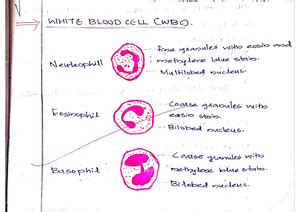 WHITE BLOOD CELL (WBC)
Neutrophill
fine granules with eosin and
methylene blue stain.
Multilobed nucleus.
Eosinophil
Coarse granules with
eosin stain.
Bilobed nucleus.
Basophil
Coarse granules with
methylene blue stain.
Bilobed nucleus.